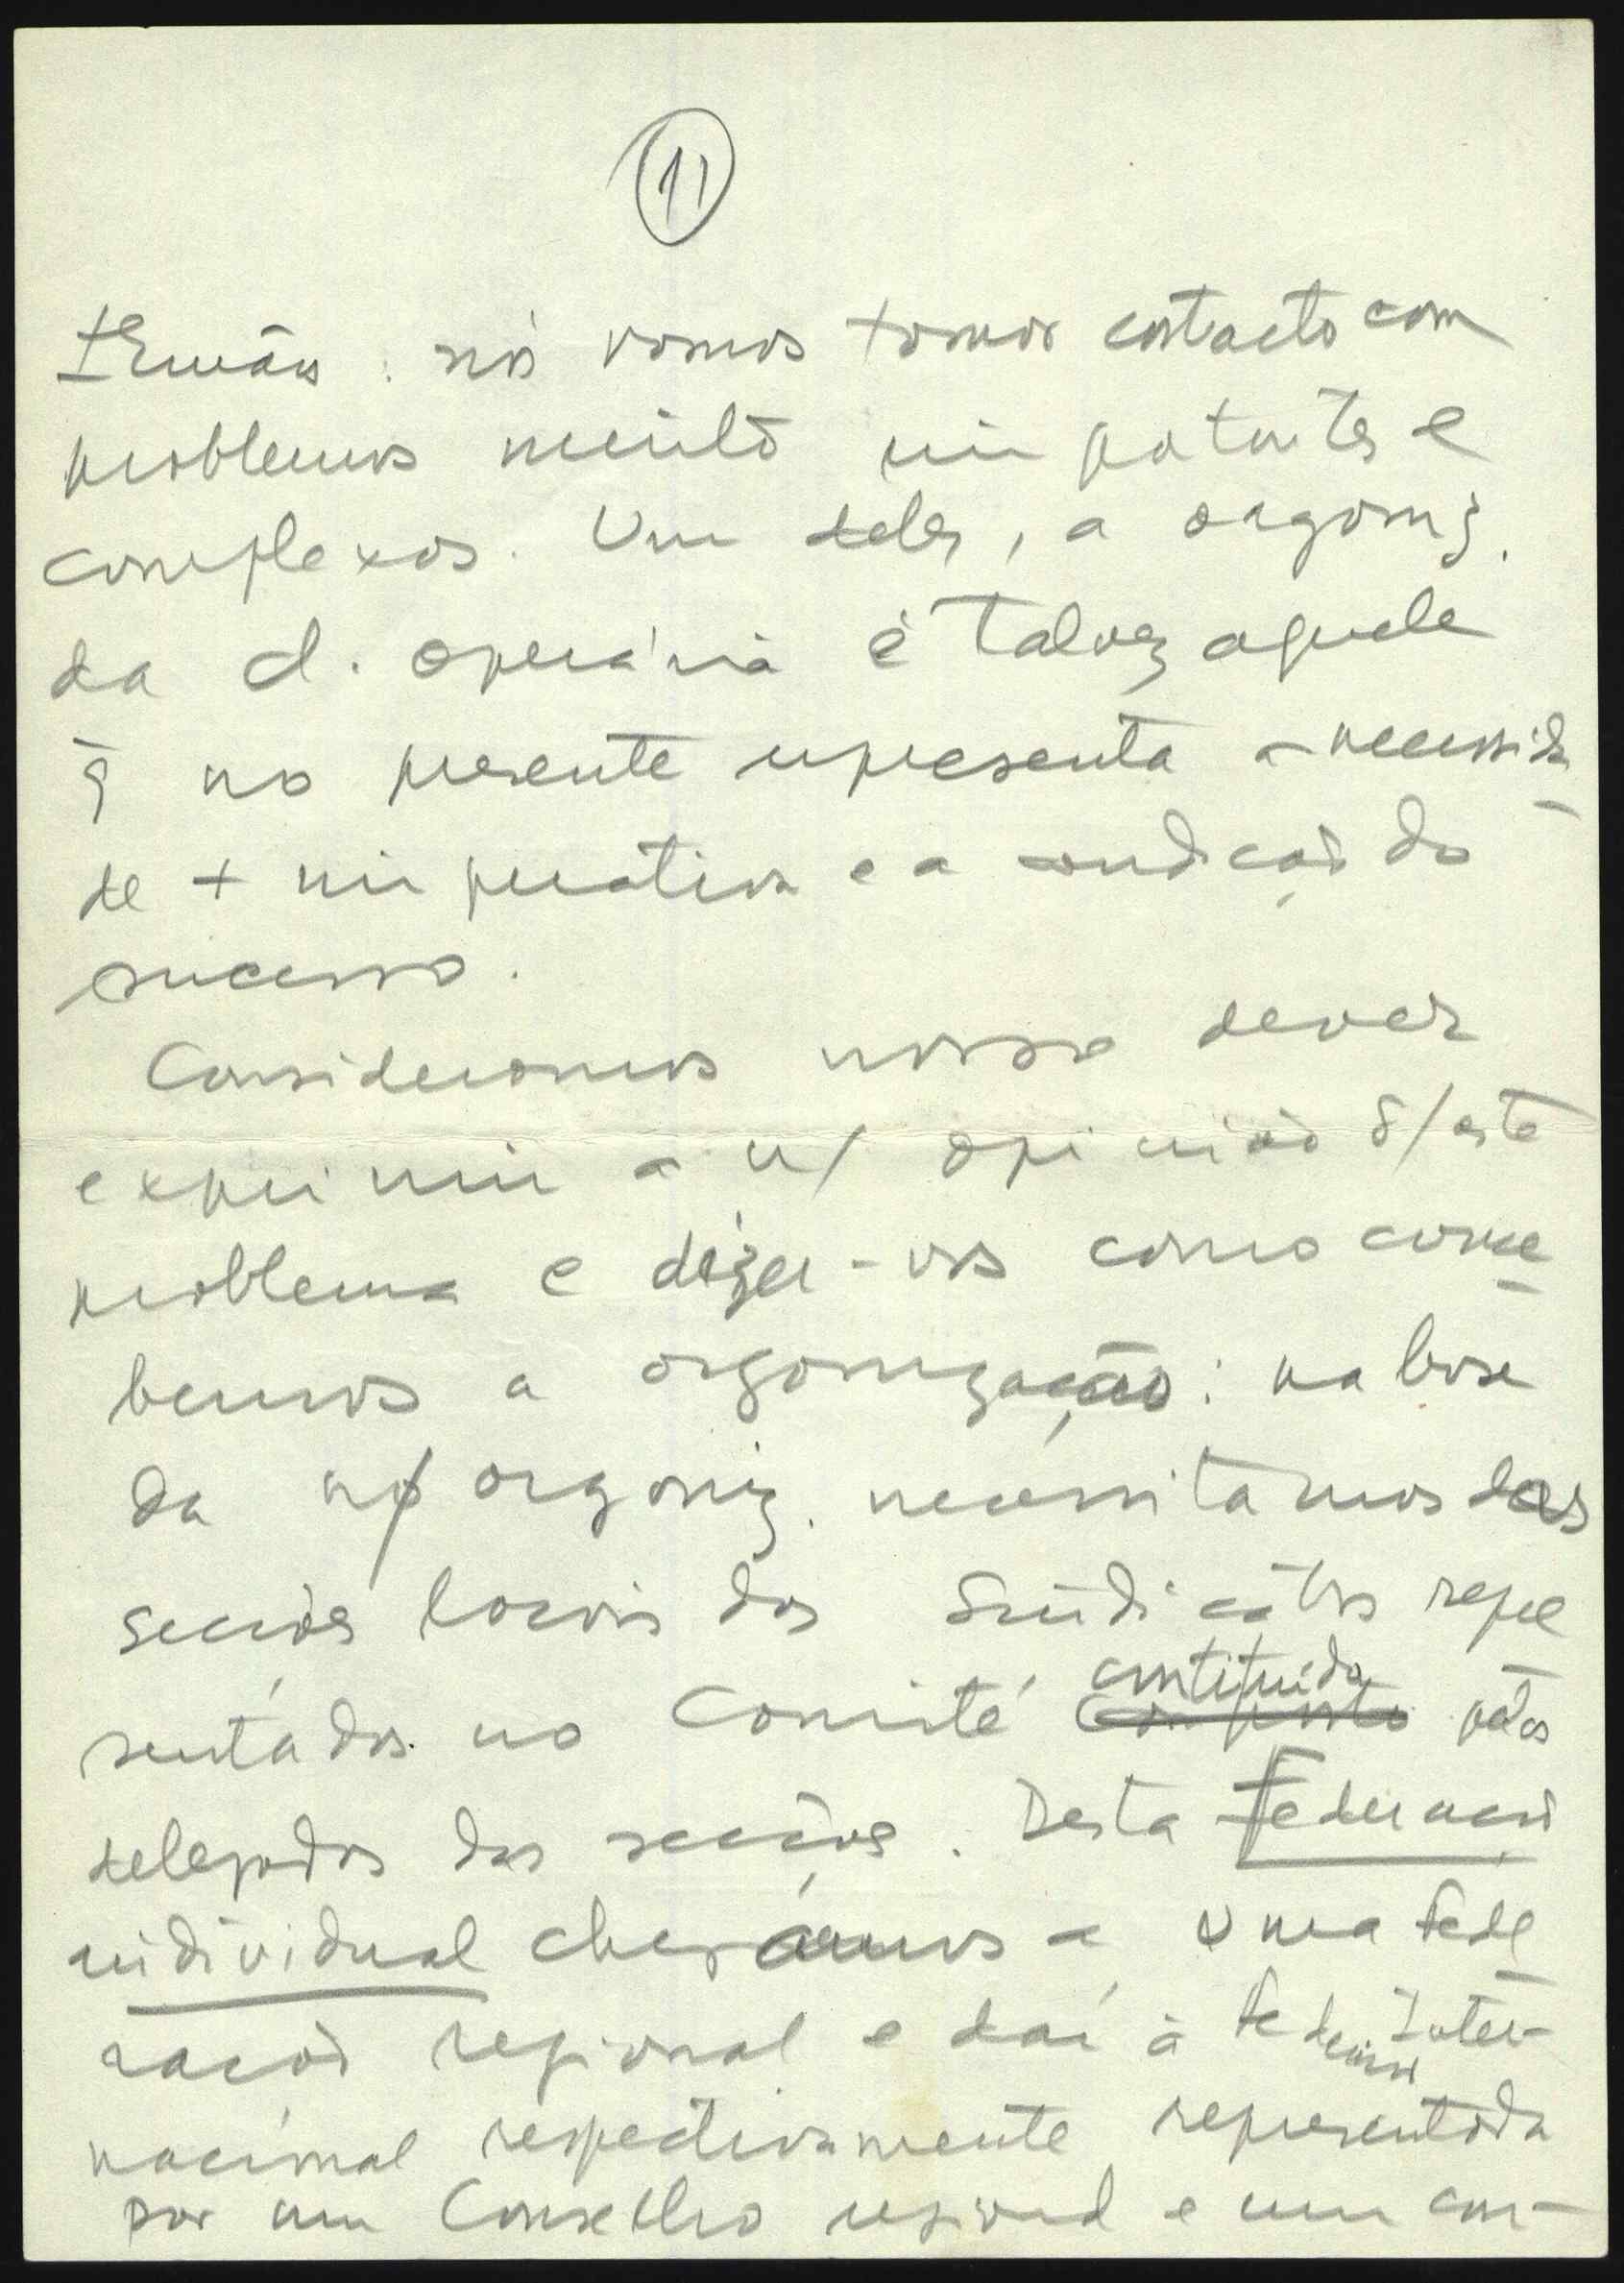 11
Irmãos: nós vamos tomar contacto com
problemas muito importantes e
complexos. Um deles, a organiz.
da cl. operária é talvez aquele
q̄ no presente representa a necessida
de + imperativa e a condição do
sucesso.
Consideramos nosso dever
exprimir a n/ opinião s/ este
problema e dizer-vos como conce
bemos a organização: na base
da n/ organiz. necessitamos das
secções locais dos Sindicatos repre
sentados no Comité composto constituído pelos
delegados das secções. Desta Federação
individual chegamos a uma fede
ração regional e daí à federação Inter-
nacional respectivamente representada
por um Conselho regional e um con-